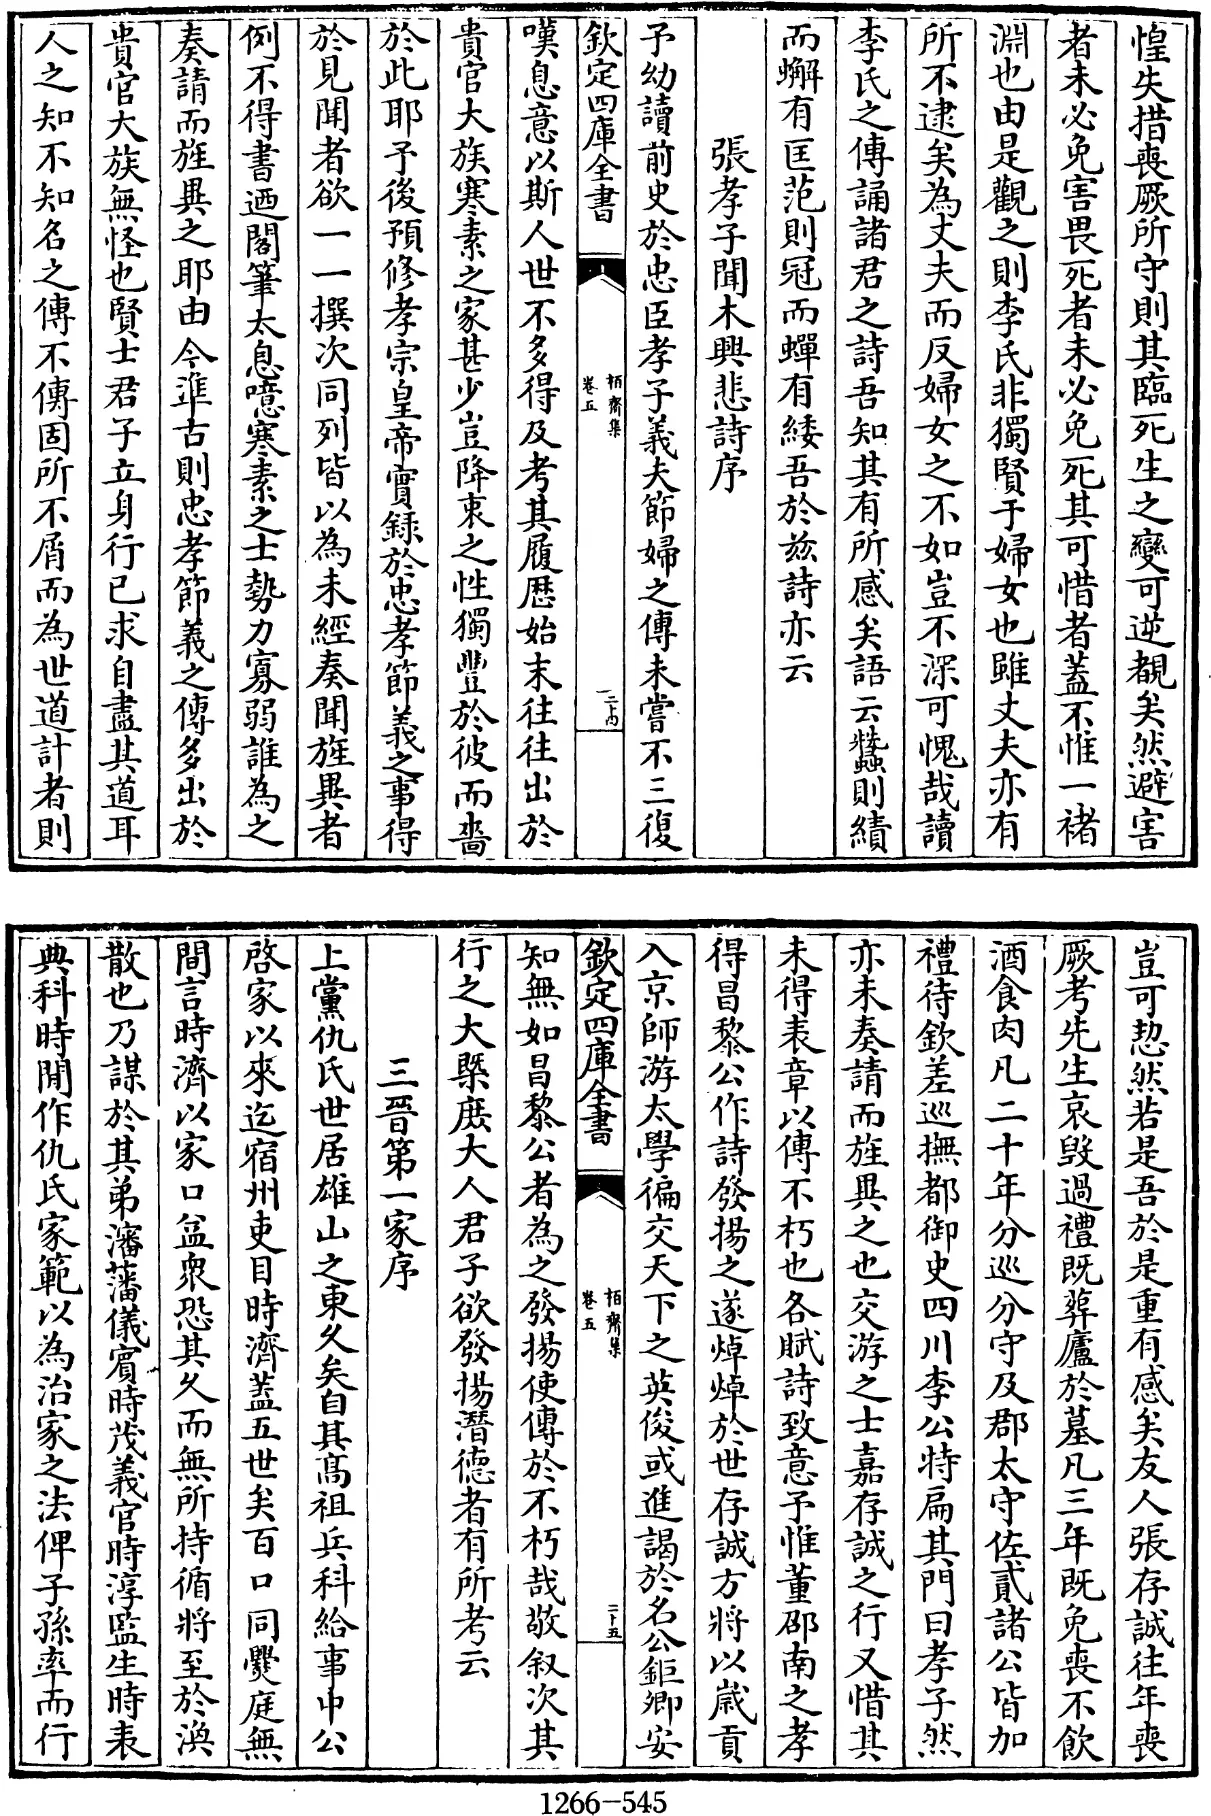 惶失措喪厥所守則其臨死生之變可逆覩矣然避害
者未必免害畏死者未必免死其可惜者蓋不惟一褚
淵也由是觀之則李氏非獨賢于婦女也雖丈夫亦有
所不逮矣為丈夫而反婦女之不如豈不深可愧哉讀
李氏之傳誦諸君之詩吾知其有所感矣語云蠶則績
而蠏有匡范則冠而蟬有緌吾於兹詩亦云
張孝子聞木興悲詩序
予幼讀前史於忠臣孝子義夫節婦之傳未嘗不三復
欽定四庫全書
栢齋集
卷五
嘆息意以斯人世不多得及考其履歴始末往往出於
貴官大族寒素之家甚少豈降衷之性獨豐於彼而嗇
於此耶予後預修孝宗皇帝實録於忠孝節義之事得
於見聞者欲一一撰次同列皆以為未經奏聞旌異者
例不得書迺閣筆太息噫寒素之士勢力寡弱誰為之
奏請而旌異之耶由今準古則忠孝節義之傳多出於
貴官大族無怪也賢士君子立身行已求自盡其道耳
人之知不知名之傳不傳固所不屑而為世道計者則
豈可恝然若是吾於是重有感矣友人張存誠往年喪
厥考先生哀毁過禮既葬廬於墓凡三年既免喪不飲
酒食肉凡二十年分巡分守及郡太守佐貳諸公皆加
禮待欽差巡撫都御史四川李公特扁其門曰孝子然
亦未奏請而旌異之也交游之士嘉存誠之行又惜其
未得表章以傳不朽也各賦詩致意予惟董邵南之孝
得昌黎公作詩發揚之遂焯焯於世存誠方將以歲貢
入京師游太學徧交天下之英俊或進謁於名公鉅卿安
欽定四庫全書
栢齋集
卷五
二十五
知無如昌黎公者為之發揚使傳於不朽哉敬叙次其
行之大槩庶大人君子欲發揚潛德者有所考云
三晉第一家序
上黨仇氏世居雄山之東久矣自其髙祖兵科給事中公
啓家以來迄宿州吏目時濟蓋五世矣百口同爨庭無
間言時濟以家口益衆恐其久而無所持循將至於渙
散也乃謀於其弟瀋藩儀賓時茂義官時淳監生時表
典科時閒作仇氏家範以為治家之法俾子孫率而行
1266-545